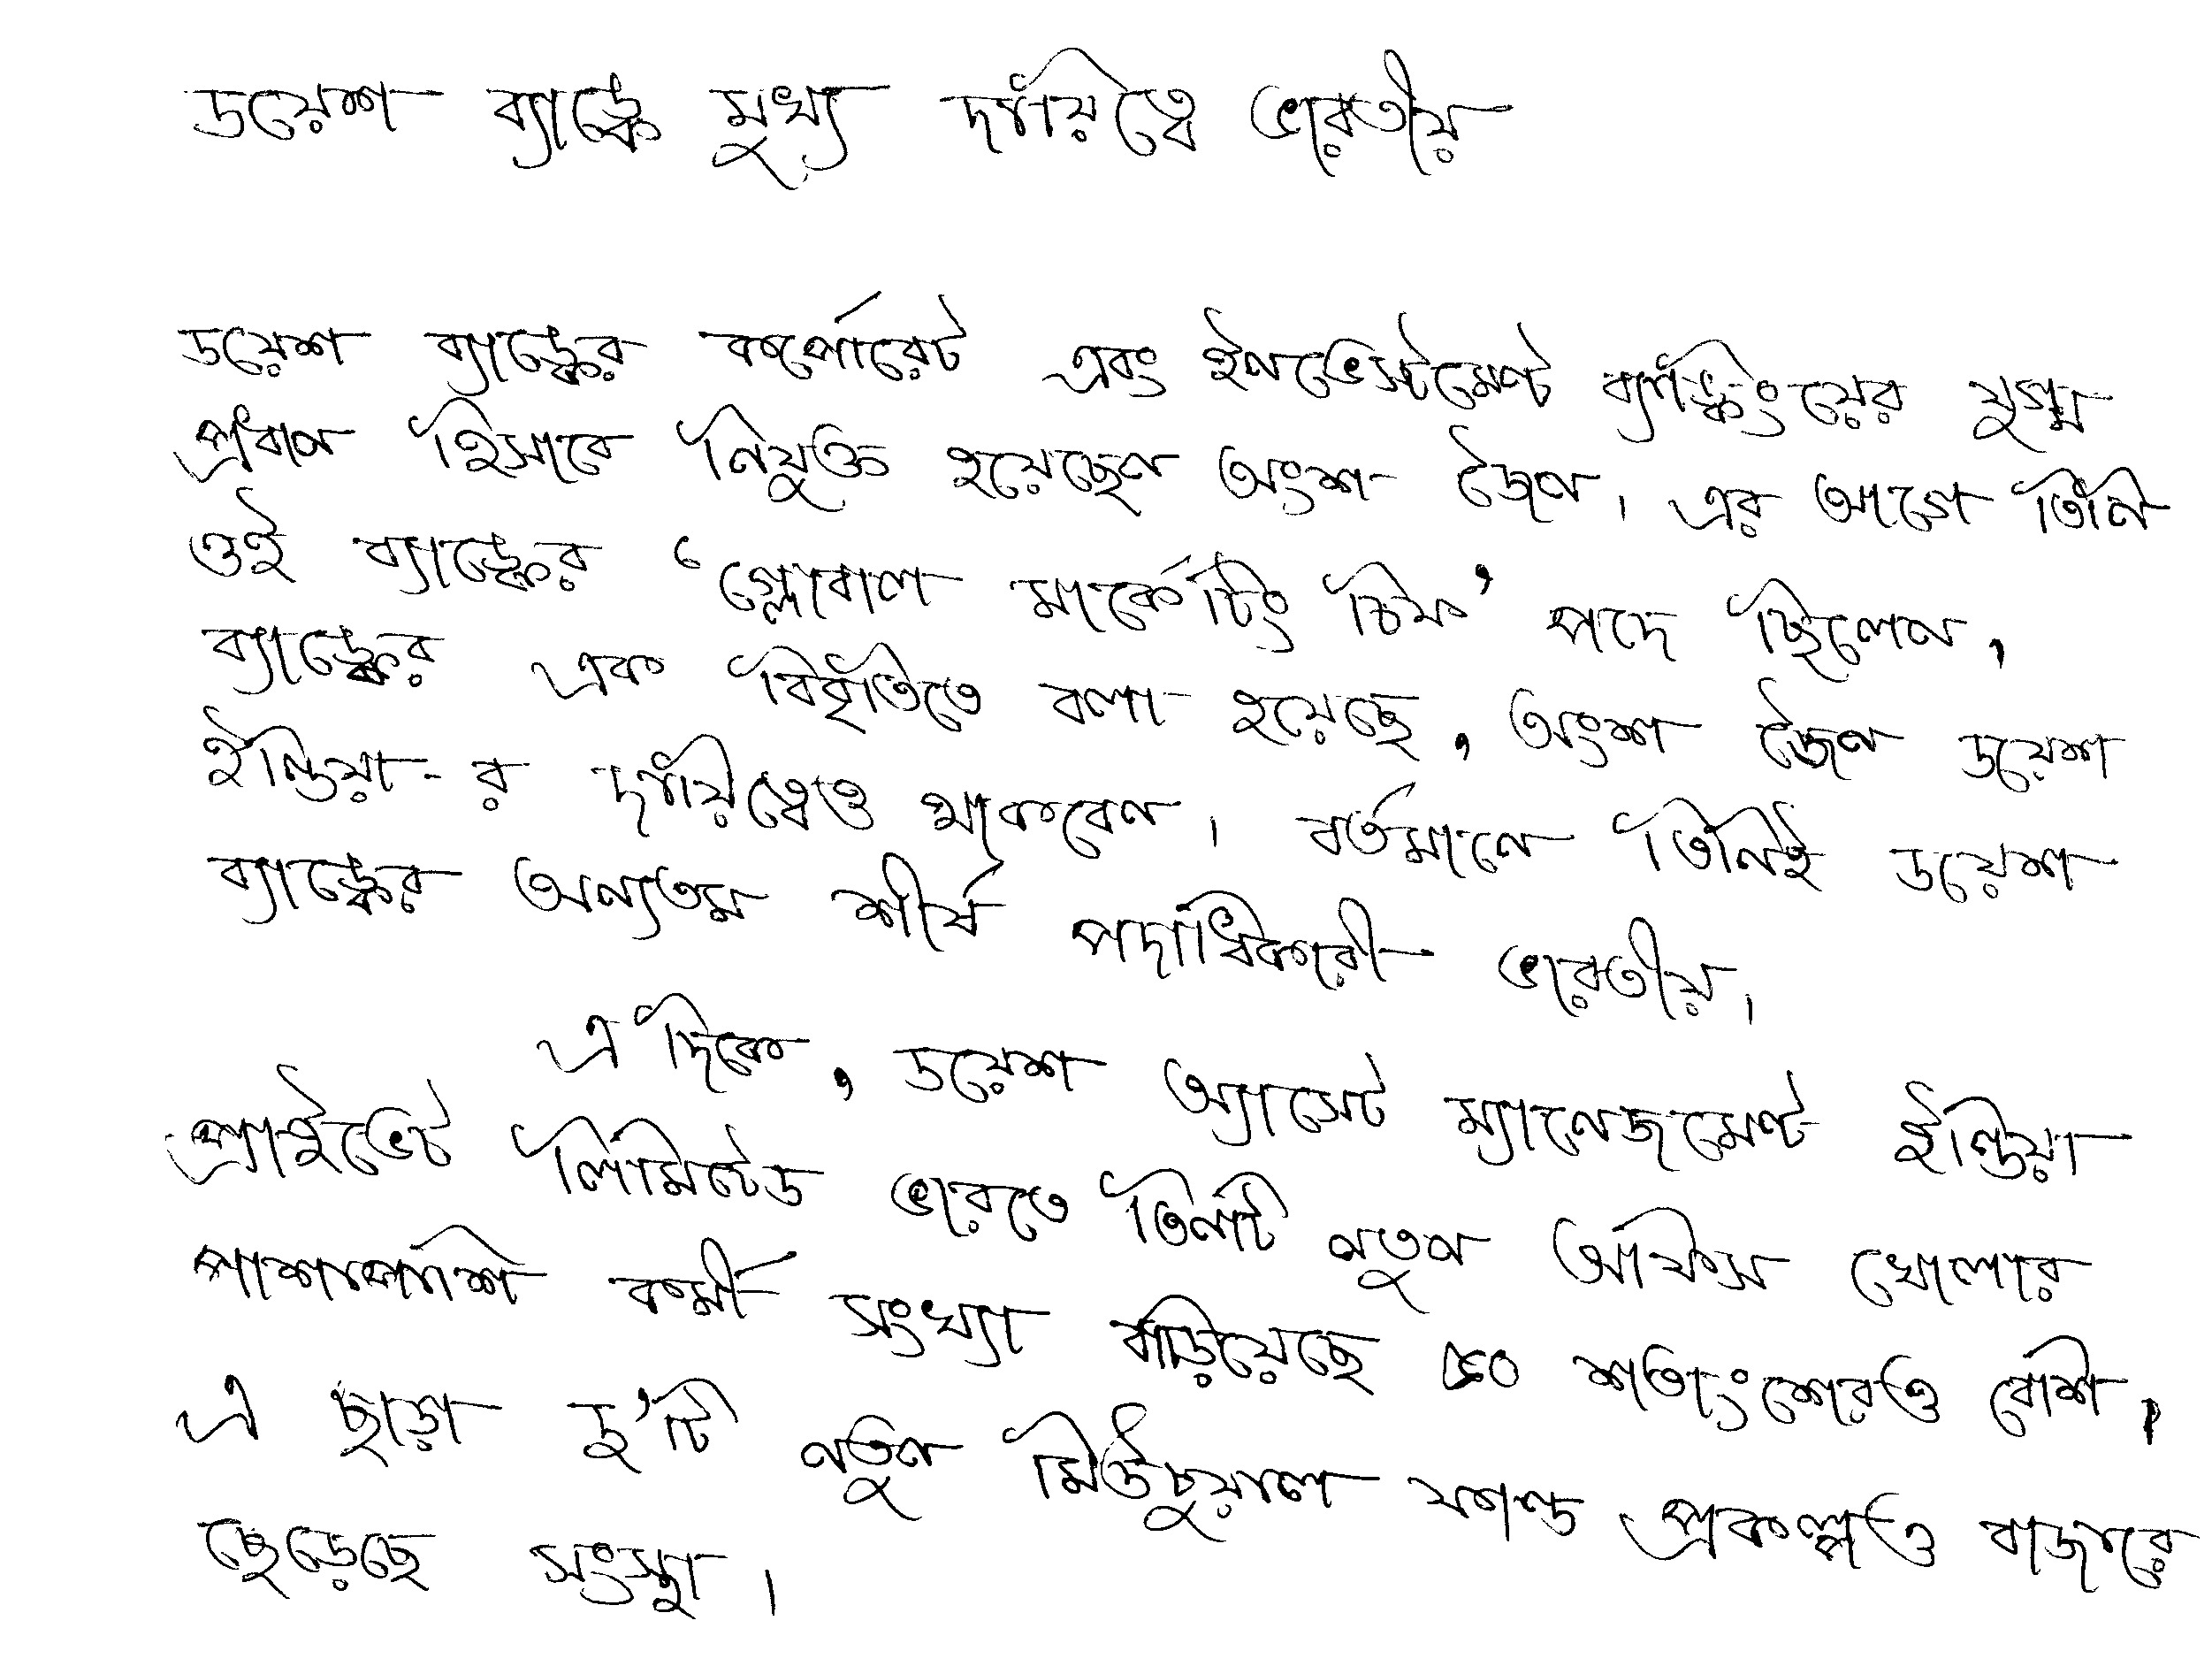 ডয়েশ ব্যাঙ্কে মুখ্য দায়িত্বে ভারতীয়
ডয়েশ ব্যাঙ্কের কর্পোরেট এবং ইনভেস্টমেন্ট ব্যাঙ্কিংয়ের যুগ্ম
প্রধান হিসাবে নিযুক্ত হয়েছেন অংশু জৈন। এর আগে তিনি
ওই ব্যাঙ্কের ‘গ্লোবাল মার্কেটিং চিফ’ পদে ছিলেন,
ব্যাঙ্কের এক বিবৃতিতে বলা হয়েছে, অংশু জৈন ডয়েশ
ইন্ডিয়া-র দায়িত্বেও থাকবেন। বর্তমানে তিনিই ডয়েশ
ব্যাঙ্কের অন্যতম শীর্ষ পদাধিকারী ভারতীয়।
এ দিকে, ডয়েশ অ্যাসেট ম্যানেজমেন্ট ইন্ডিয়া
প্রাইভেট লিমিটেড ভারতে তিনটি নতুন অফিস খোলার
পাশাপাশি কর্মী সংখ্যা বাড়িয়েছে ৫০ শতাংশেরও বেশি,
এ ছাড়া দু’টি নতুন মিউচুয়াল ফান্ড প্রকল্পও বাজারে
ছেড়েছে সংস্থা।